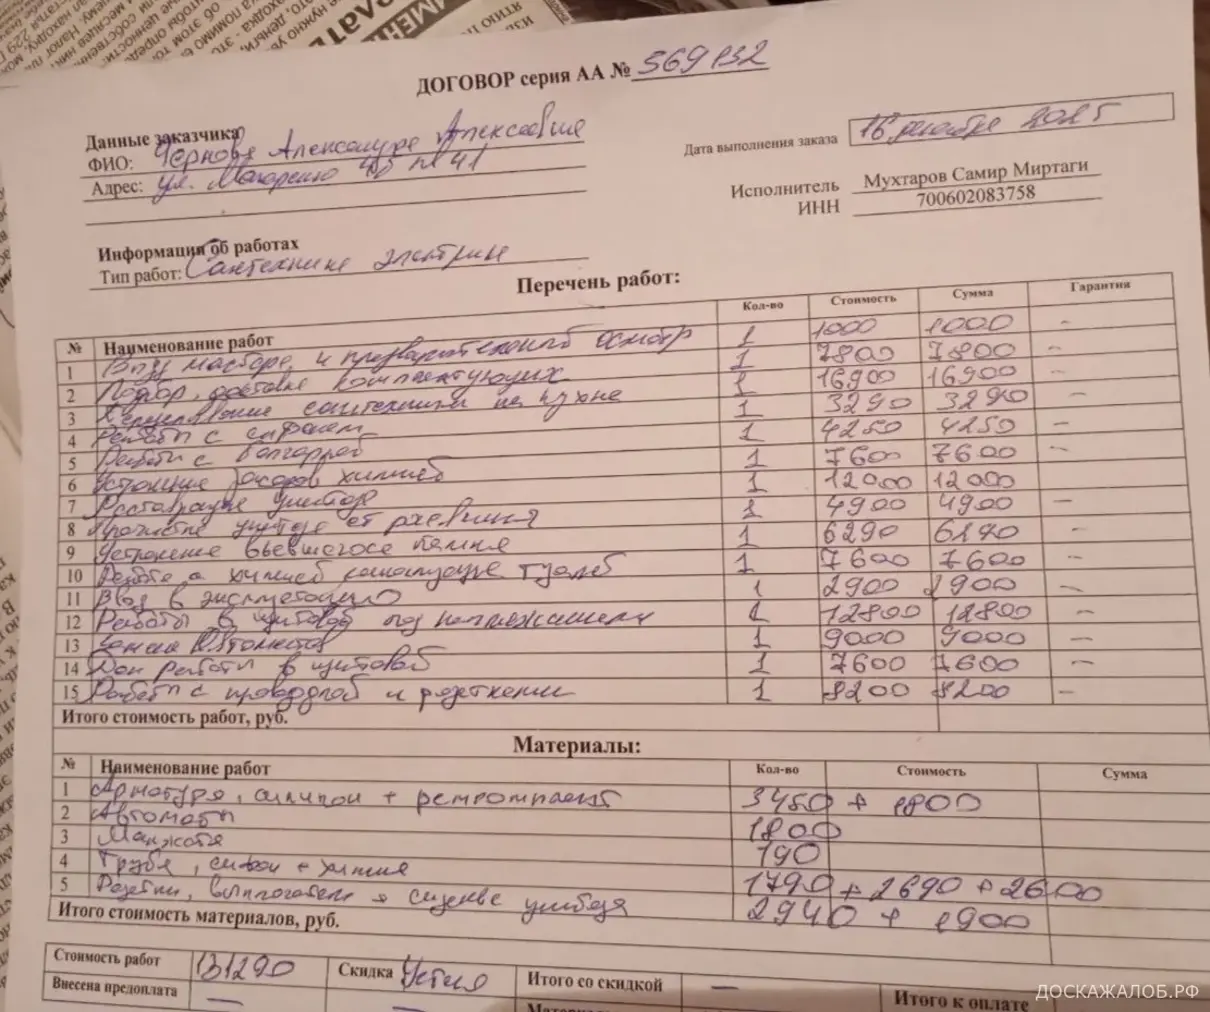 ДОГОВОР серия АА № 569132
Данные заказчика
ФИО: Чернова Александра Алексеевна
Адрес: ул. Макаренко 41
Дата выполнения заказа 16 декабря 2025
Исполнитель Мухтаров Самир Миртаги
ИНН 700602083758
Информация об работах
Тип работ: Сантехника электрика
Перечень работ:
№ Наименование работ Кол-во Стоимость Сумма Гарантия
1 мастера, и предварительный осмотр 1 1000 1000 –
2 Подбор, доставка комплектующих 1 7800 7800 –
3 сантехники на кухне 1 16900 16900 –
4 Работы с сифоном 1 3290 3290 –
5 Работы с болгаркой 1 4250 4250 –
6 Устранение засоров химией 1 7600 7600 –
7 Реставрация унитаза 1 12000 12000
8 Прочистка унитаза от ржавчины 1 4900 4900 –
9 Устранение въевшегося камня 1 6290 6290 –
10 Работа с химией канализация туалет 1 7600 7600 –
11 Ввод в эксплуатацию 1 2900 2900 –
12 Работы в щитовой под напряжением 1 12800 12800 –
13 Замена Автоматов 1 9000 9000 –
14 Доп работы в щитовой 1 7600 7600 –
15 Работы с проводкой и розетками 1 8200 8200 –
Итого стоимость работ, руб.
Материалы:
№ Наименование работ Кол-во Стоимость Сумма
1 Арматура, + ремкомплект 3450 + 1800
2 Автоматы 1800
3 Манжета 190
4 Труба, сифон + химия 1790 + 2690 + 2600
5 Розетки, выключатели + сиденье унитаза 2940 + 1900
Итого стоимость материалов, руб.
Стоимость работ 131290 Скидка Итого со скидкой –
Внесена предоплата – Итого к оплате
ДОСКАЖАЛОБ.РФ